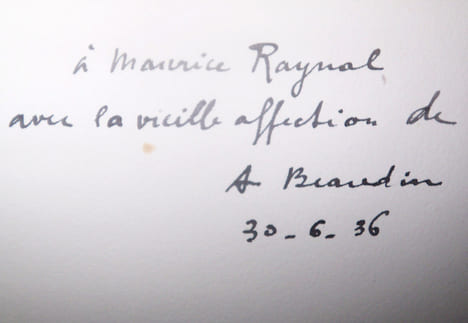 à Maurice Raynal
avec la vieille affection de
A Beaudin
30-6-36